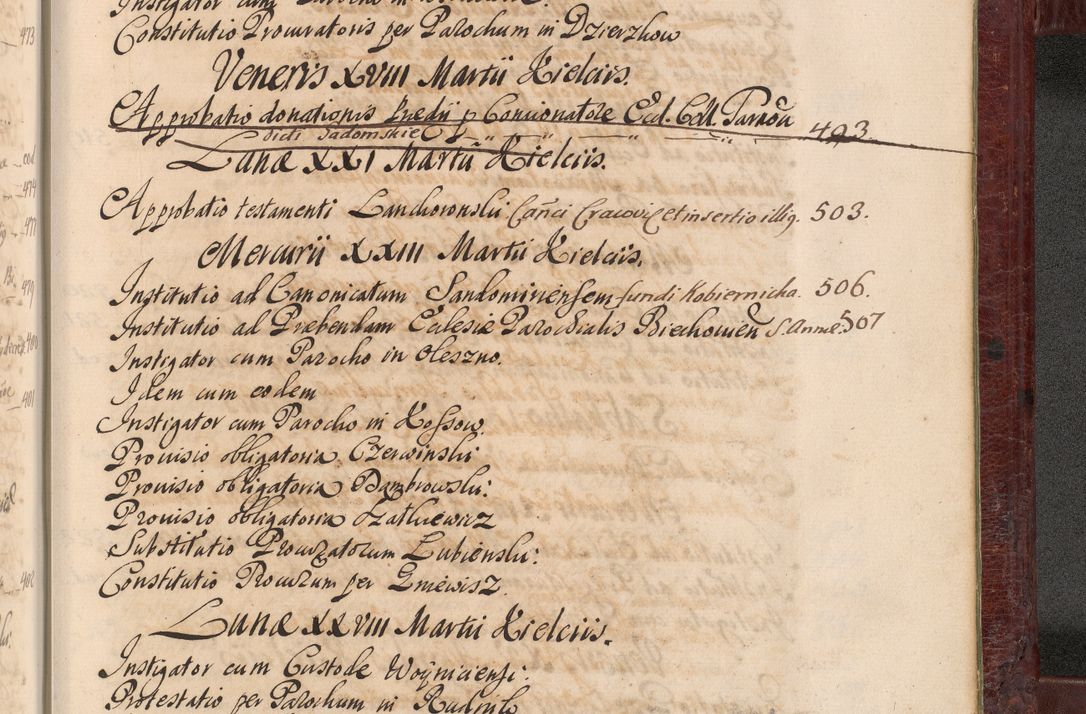 Instigator cum Parocho in
Constitutio Procuratoris per Parochum in Dzierzkow
Veneris XVIII Martii Kielciis.
Approbatio donationis Predii p Concionatore Eccl. Coll. 493
dicti Sadomskie
Lunæ XXI Martii Kielciis.
Approbatio testamenti Lanckoronski Cañci Cracovie et insertio illig. 503.
Mercurii XXIII Martii Kielciis.
Institutio ad Canonicatum Sandomiriensem fundi Kobiernicka. 506.
Institutio ad Præbendam Eclesiæ Parochialis Biechowien S. Annæ. 507
Instigator cum Parocho in Oleszno.
Idem cum eodem
Instigator cum Parocho in Kossow.
Provisio obligatoria Czerwinski
Provisio obligatoria Dambrowski:
Provisio obligatoria Załuewicz
Substitutio Procuratorum Łubienski:
Constitutio Procurum per Gniewisz.
Lunæ XXVIII Martii Kielciis.
Instigator cum Custode Woyniciensi:
Protestatio per Parochum in Rudnik
473
eod
474
477
479
400
401
402